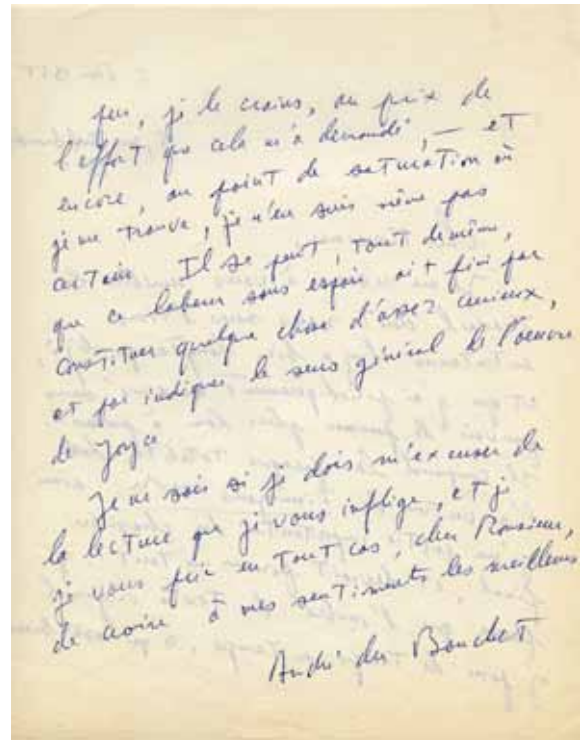 peu, je le crains, au prix de
l'effort que cela m'a demandé, — et
encore, au point de saturation où
je me trouve, je n'en suis même pas
certain. Il se peut, tout de même,
que ce labeur sans espoir ait fini par
constituer quelque chose d'assez curieux,
et par indiquer le sens général de l'oeuvre
de Joyce
Je ne sais si je dois m'excuser de
la lecture que je vous inflige, et je
vous prie en tout cas, cher Monsieur,
de croire à mes sentiments les meilleurs
André du Bouchet